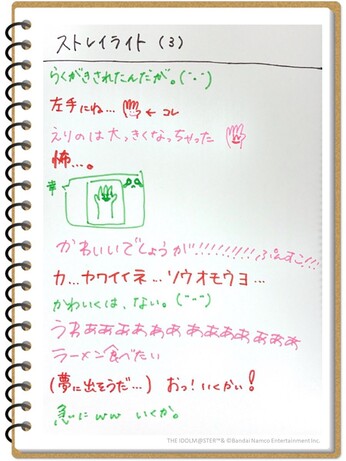 ストレイライト (3)
らくがきされたんだが。(˙-˙)
左手にね… ← コレ
えりのは大っきくなっちゃった
怖…。
かわいいでしょうが!!!!!!!!! ぷんすこ!!!
カ…ヤワイイネ…ソウオモウヨ…
かわいくは、ない。(˙-˙)
うわぁぁぁぁぁぁぁぁぁぁぁぁ
ラーメン食べたい
(夢に出そうだ…) おっ!いくかい!
急にww いくか。
THE IDOLM@STER™& ©Bandai Namco Entertainment Inc.